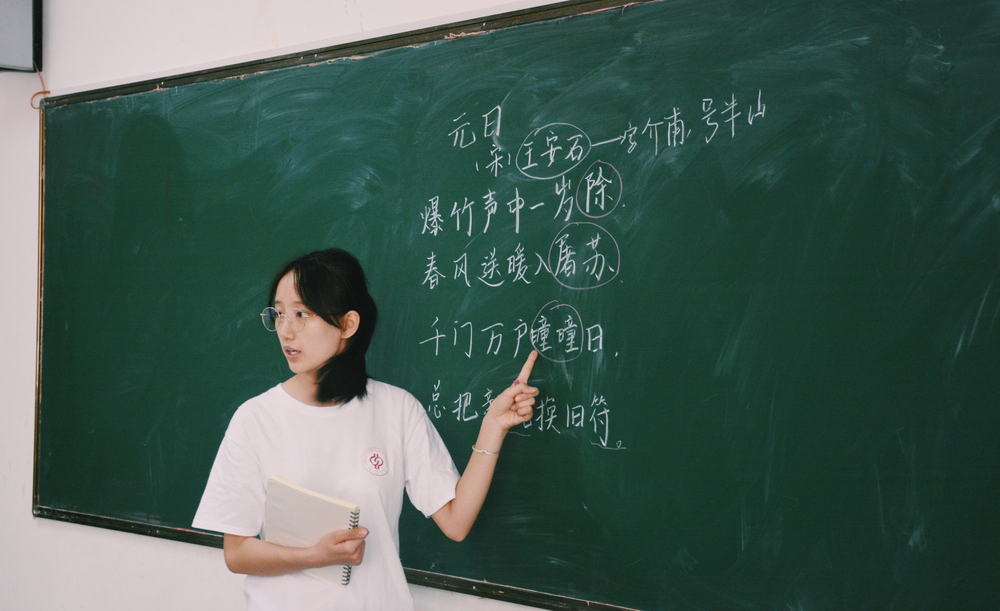 元日
(宋)王安石—字介甫,号半山
爆竹声中一岁除,
春风送暖入屠苏.
千门万户曈曈日,
总把 换旧符。